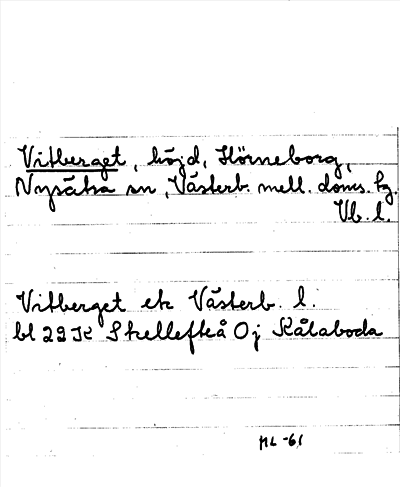 Vitberget, höjd, Hörneborg,
Nysätra sn, Västerb. mell. doms. tg.
Vb. l.
Vitberget ek Västerb. l.
bl 22 K Skellefteå Oj Kålaboda
ML -61